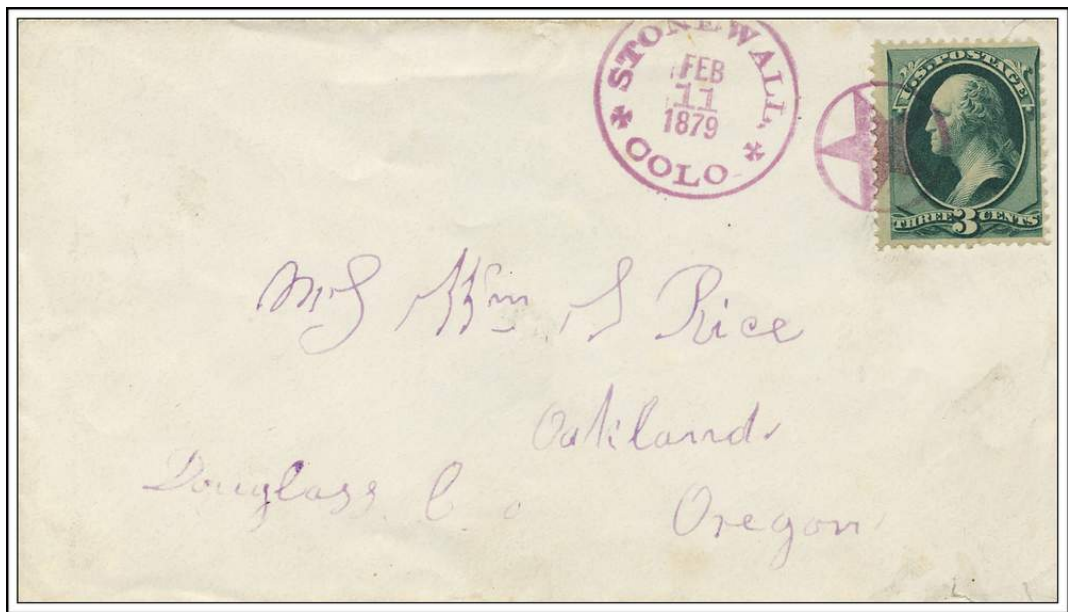 STONEWALL,
FEB
11
1879
COLO
U.S. POSTAGE
THREE 3 CENTS
Mrs Wm S Rice
Oakland
Douglass Co
Oregon